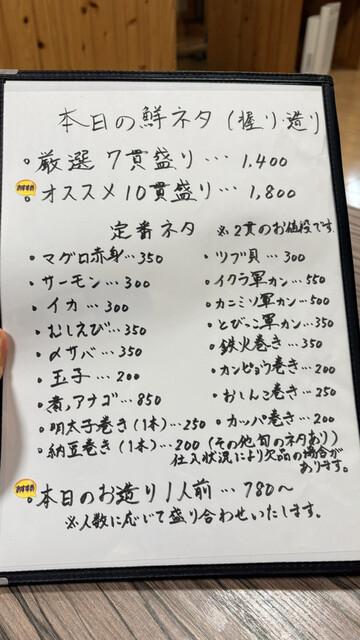 本日の鮮ネタ (握り・造り
・厳選7貫盛り… 1,400
おすすめ
・オススメ10貫盛り… 1,800
定番ネタ ※2貫のお値段です。
・マグロ赤身…350
・サーモン…300
・イカ…300
・むしえび…350
・〆サバ…350
・玉子…200
・煮アナゴ…850
・明太子巻き(1本)…250
・納豆巻き(1本)…200
・ツブ貝…300
・イクラ軍カン…550
・カニミソ軍カン…500
・とびっこ軍カン…350
・鉄火巻き…350
・カンピョウ巻き…200
・おしんこ巻き…250
・カッパ巻き…200
(その他旬のネタあり)
仕入状況により欠品の場合が
あります。
おすすめ
・本日のお造り1人前…780〜
※人数に応じて盛り合わせいたします。